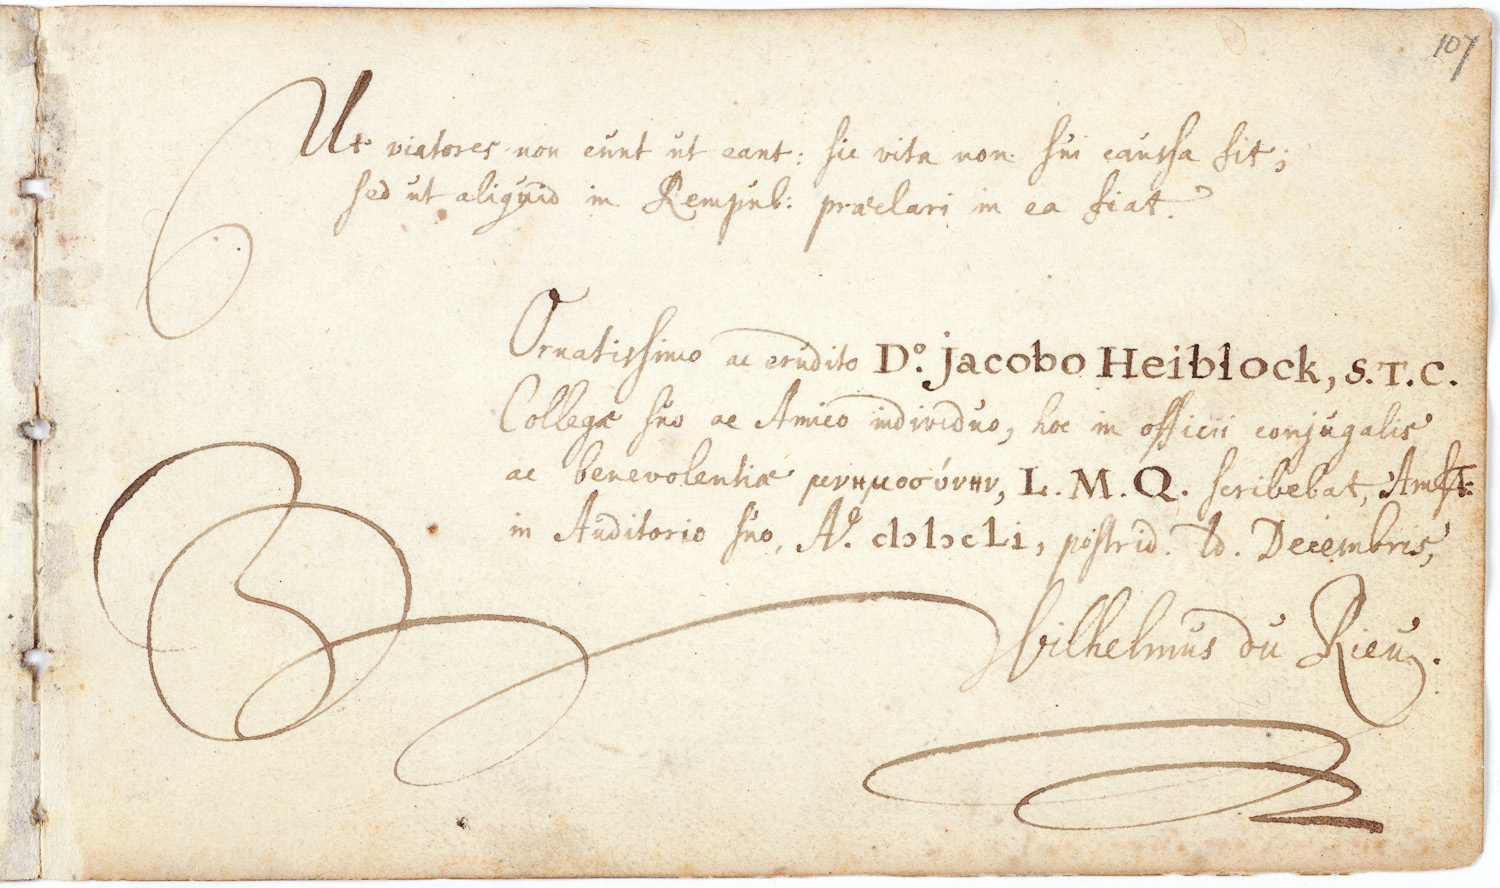 107
Ut viatores non eunt ut eant: sic vita non sui caussa fit;
sed ut aliquid in Rempub: præclari in ea fiat.
Ornatissimo ac erudito D.º Jacobo Heiblock, S.T.C.
Collegæ suo ac Amico individuo, hoc in officii conjugalis
ac benevolentiæ μνημοσύνην, L. M. Q. scribebat, Amst:
in Auditorio suo, Aº. cIↄIↄcLI, postrid. Id. Decembris,
Wilhelmus du Rieu.